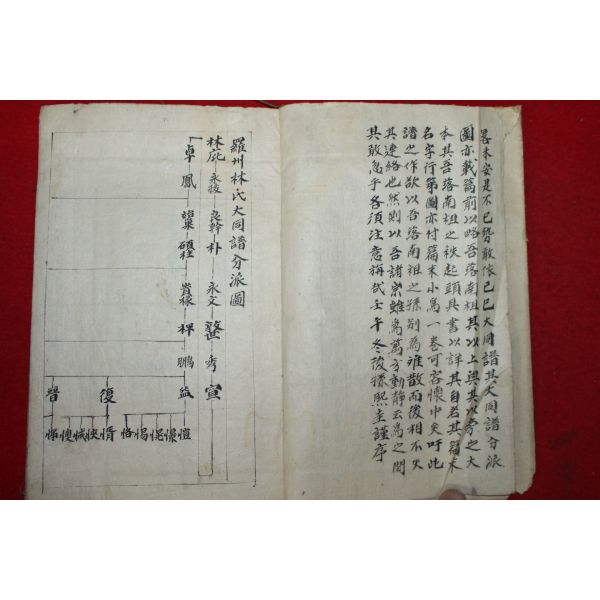 畧未安是不已勢敢依己巳大同譜其大同譜分派
圖亦載篇前以略吾落南祖其以上與其以旁之大
本其吾落南祖之秩起頭具書以詳其自若其篇末
名字行第圖亦付篇末小爲一卷可容懷中矣吁此
譜之作欲以吾落南祖之孫別爲雖散而後相不失
其連絡也然則以吾諸宗雖爲萬方動靜云爲之間
其敢忽乎各須注意旃哉壬午冬後孫熙圭謹序
羅州林氏大同譜分派圖
林庇 永 良幹 朴 永文 秀 宣
卓 鳳 碩柱 貴椽 稗 鵬 益
復 晉
愷 懆 惕 恪 惰 怏 悚